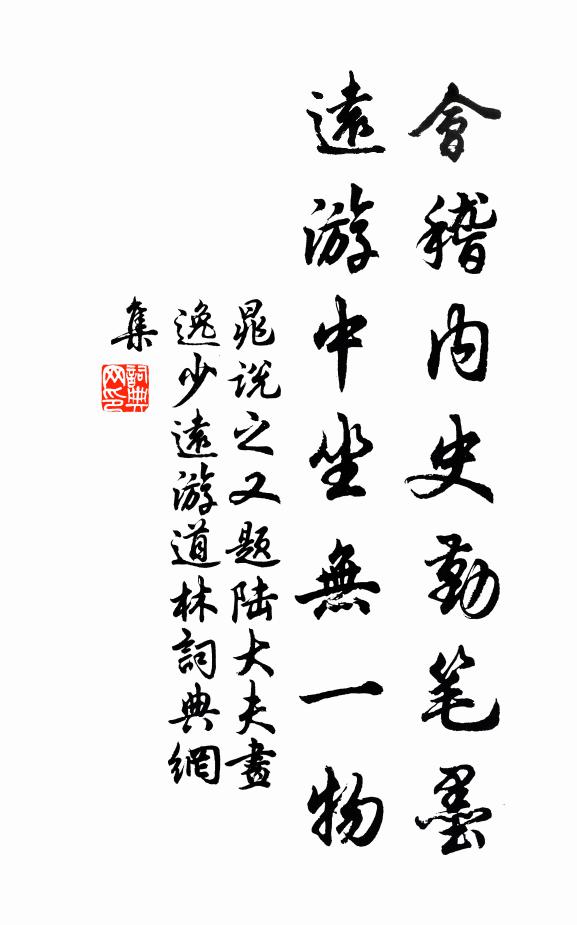 會稽内史勤笔墨
遠游中坐無一物
晁说之又题陆大夫畫
逸少遠游道林詞典網
集
詞典
网印